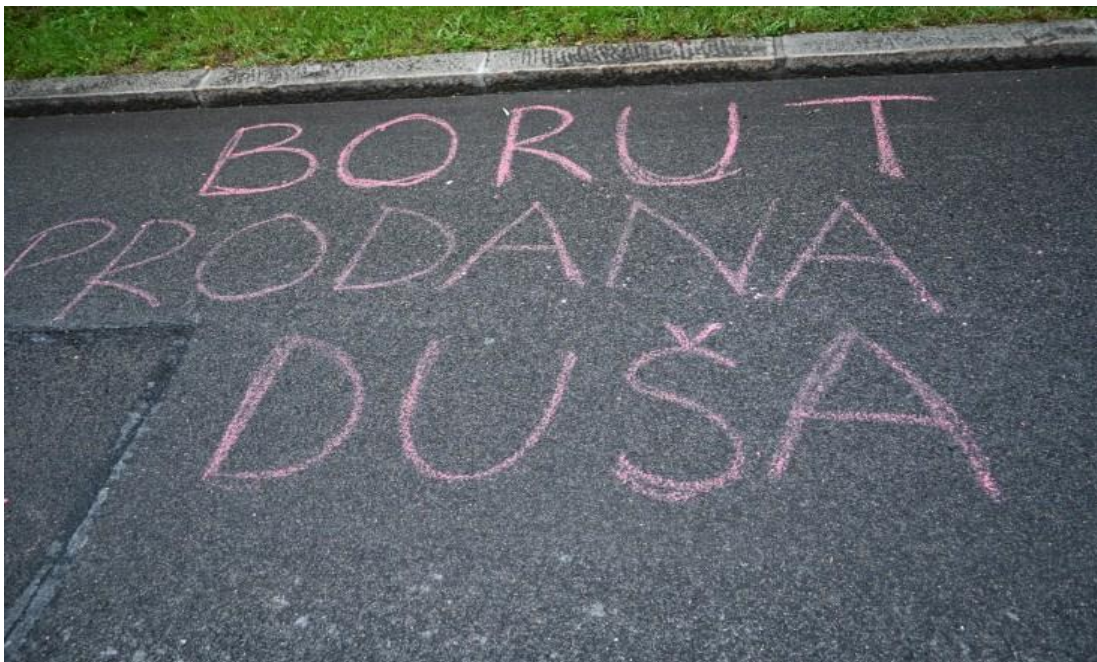 BORUT
PRODANA
DUŠA